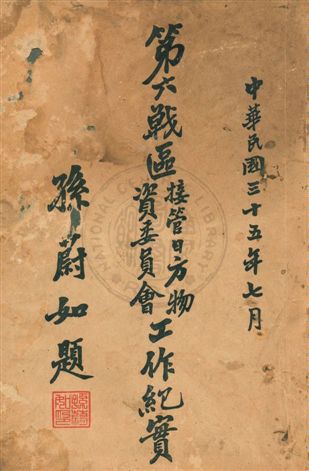 中華民國三十五年七月
第六戰區接管日方物資委員會工作紀實
孫蔚如題
NATIONAL CENTRAL LIBRARY